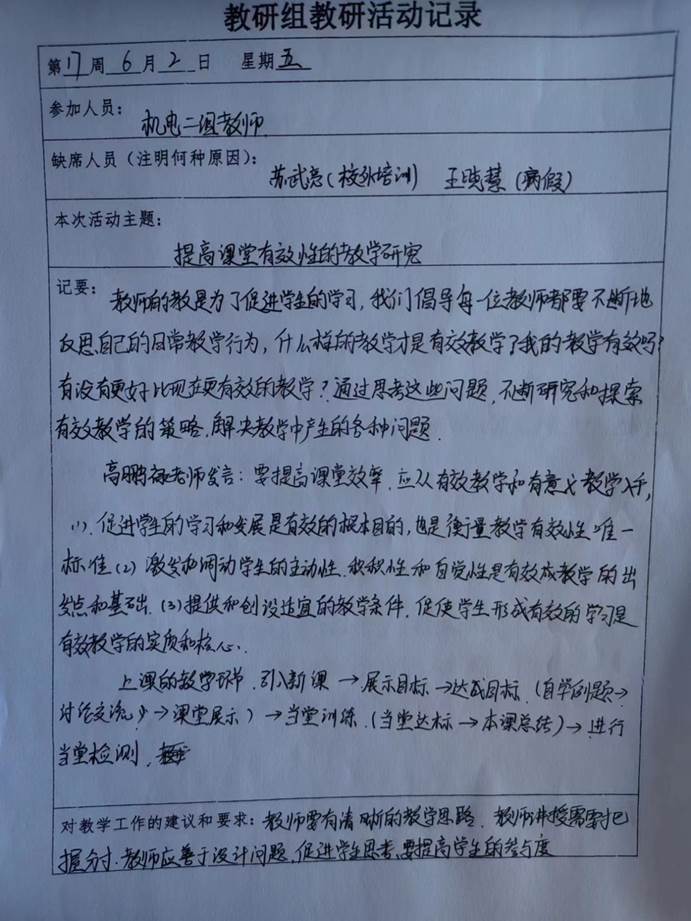 教研组教研活动记录
第17周 6 月 2 日 星期五
参加人员：
机电二组教师
缺席人员（注明何种原因）：
苏武 (校外培训) 王晓慧 (病假)
本次活动主题：
提高课堂有效性的教学研究
记要： 教师的教是为了促进学生的学习，我们倡导每一位教师都要不断地
反思自己的日常教学行为，什么样的教学才是有效教学？我的教学有效吗？
有没有更好比现在更有效的教学？通过思考这些问题，不断研究和探索
有效教学的策略，解决教学中产生的各种问题．
高鹏 老师发言：要提高课堂效率，应从有效教学和有意义教学入手，
(1)．促进学生的学习和发展是有效的根本目的，也是衡量教学有效性唯一
标准 (2) 激发和调动学生的主动性、积积性和自觉性是有效成教学的出
发点和基础．(3) 提供和创设适宜的教学条件，促使学生形成有效的学习是
有效教学的实质和核心．
上课的教学环节．引入新课 → 展示目标 → 达成目标．(自学例题→
讨论交流 → 课堂展示) → 当堂训练．(当堂达标 → 本课总结) → 进行
当堂检测．
对教学工作的建议和要求：教师要有清晰的教学思路．教师讲授需要把
握分寸．教师应善于设计问题，促进学生思考，要提高学生的参与度